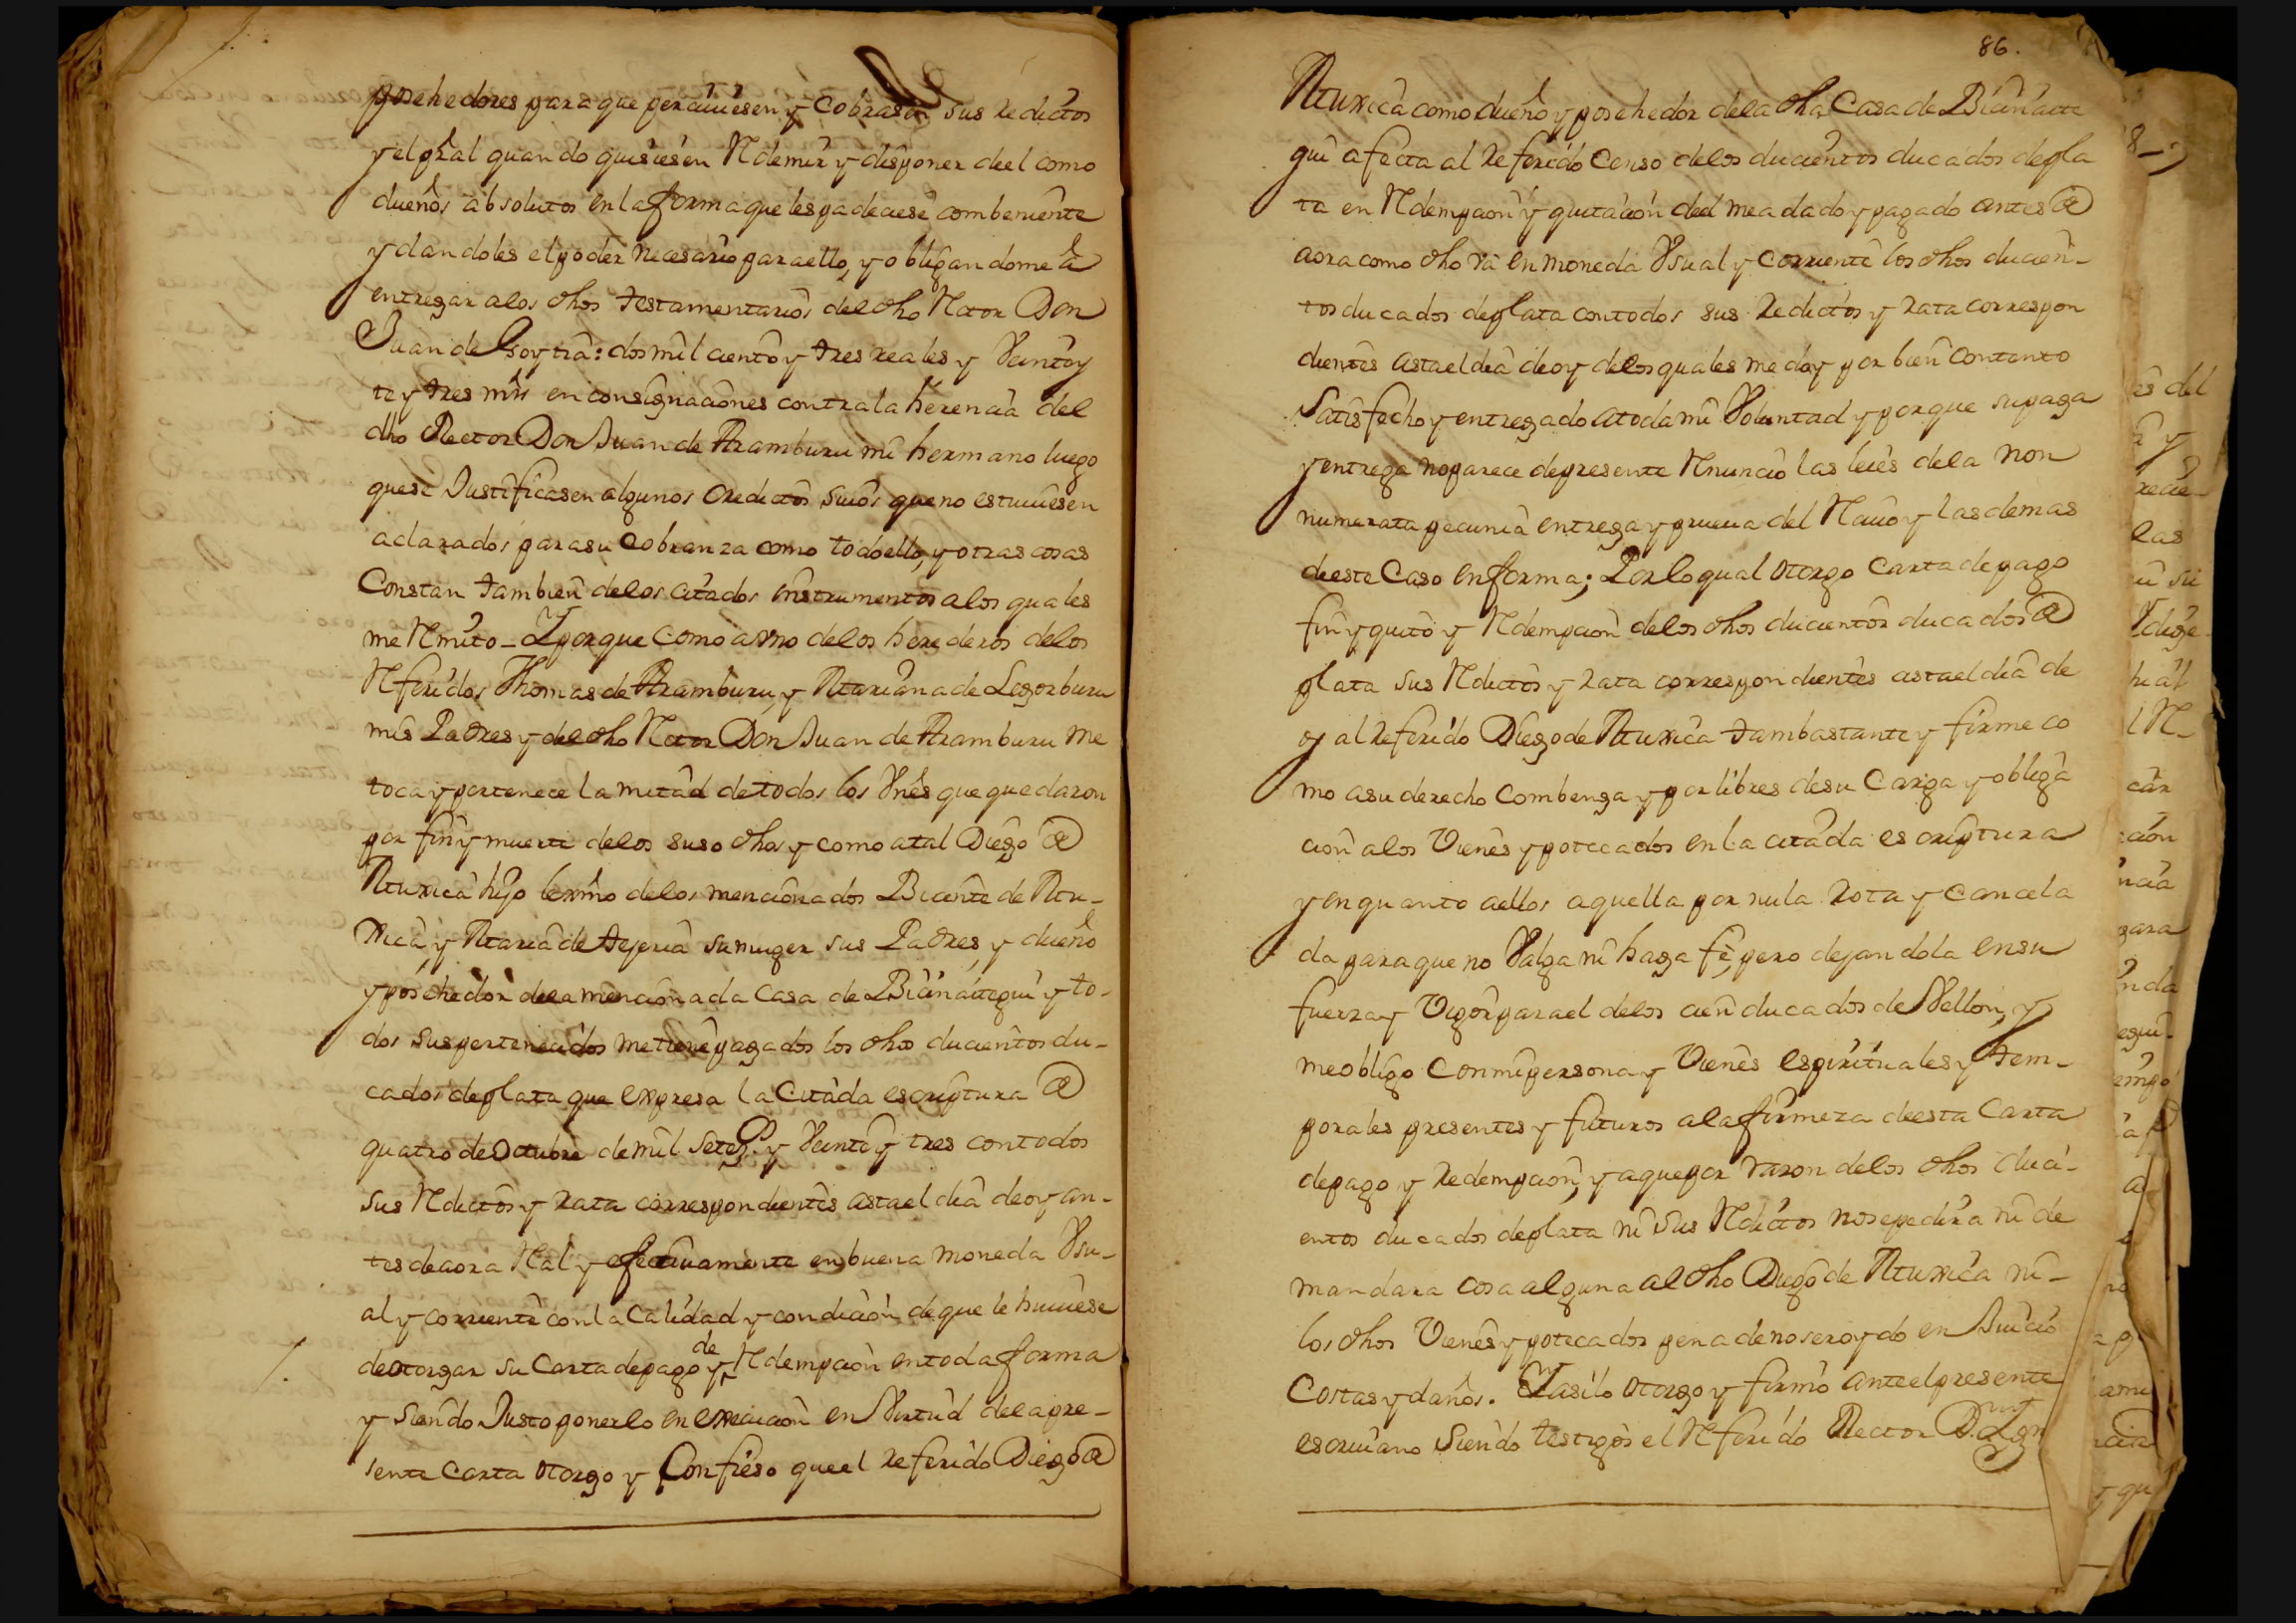 posehedores para que perciuiesen y Cobrasen sus redictos
y el pral quando quisiesen Redemir y disponer de el como
dueños absolutos en la forma que les padeciese combeniente
y dandoles el poder necesario para ello, y obligandome â
entregar a los dhos testamentarios del dho Rector Don
Juan de Ysoytia: dos mil ciento y tres reales y Veinte y
te y tres mrs en consignaciones contra la herencia del
dho Rector Don Juan de Aramburu mi hermano luego
que se Justificasen algunos credictos suios que no estuuiesen
aclarados para su Cobranza como todo ello, y otras cosas
Constan tambien de los citados instrumentos a los quales
me Rmito _ Y porque como a vno de los herederos de los
Rferidos Thomas de Aramburu, y Mariana de Legorburu
mis Padres y del dho Rector Don Juan de Aramburu me
toca y pertenece la mitad de todos los Vnes que quedaron
por fin y muerte de los suso dhos y como a tal Diego de
Muxica hijo lexmo de los mencionados Bicente de Mu-
xica, y Maria de Tejeria su muger sus Padres, y dueño
y posehedor de la mencionada casa de Bicinategui y to-
dos sus pertenecidos me tiene pagados los dhos ducientos du-
cados de plata que expresa la Citada escriptura de
quatro de Octubre de mil setez.s y Veinte y tres con todos
sus Redictos y rata correspondientes asta el dia de oy an-
tes de aora Ral y efectiuamente en buena moneda Vsu-
al y corriente con la calidad y condicion de que le huuiese
de otorgar su Carta de pago y de Redempcion en toda forma
y siendo Justo ponerlo en execucion en Virtud de la pre-
sente carta otorgo y Confieso que el referido Diego de
86.
Muxica como dueño y posehedor de la dha Casa de Bicinate
gui afecta al referido Censo de los ducientos ducados de pla
ta en Redempcion y quitacion del me a dado y pagado antes de
aora como dho va en moneda Vsual y Corriente los dhos ducien-
tos ducados de plata con todos sus redictos y rata correspon
dientes asta el dia de oy de los quales me doy por bien contento
Satisfecho y entregado a toda mi Voluntad y porque su paga
y entrega no parece de presente Rnuncio las leies de la non
numerata pecunia entrega y prueua del Reciuo y las demas
de este Caso en forma; Por lo qual otorgo Carta de pago
fin y quito y Redempcion de los dhos ducientos ducados de
plata sus Redictos y rata correspondientes asta el dia de
oy al referido Diego de Muxica tam bastante y firme co
mo a su derecho combenga y por libres de su Carga y obliga
cion a los Vienes ypotecados en la citada escriptura
y en quanto a ellos aquella por nula rota y Cancela
da para que no Valga ni haga fe, pero dejandola en su
fuerza y Vigor para el de los cien ducados de Vellon, y
me obligo con mi persona y Vienes espirituales y tem-
porales presentes y futuros a la firmeza de esta Carta
de pago y Redempcion, y a que por razon de los dhos duci-
entos ducados de plata ni sus Redictos no se pedira ni de
mandara cosa alguna al dho Diego de Muxica ni-
los dhos Vienes ypotecados pena de no ser oydo en Juicio
Costas y daños. Y asi lo otorgo y firmo ante el presente
escriuano siendo testigos el Rferido Rector D.